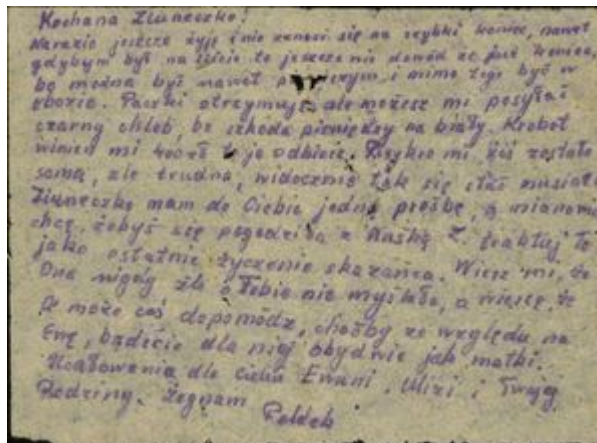 Kochana Ziuneczko!
Narazie jeszcze żyję i nie zanosi się na szybki koniec, nawet
gdybym był na liście to jeszcze nie dowód że już koniec,
bo można być nawet i mimo tego być w
obozie. Paczki otrzymuję, ale możesz mi posyłać
czarny chleb, bo szkoda pieniędzy na biały. Krobot
winien mi to je odbierz. Przykro mi, żeś została
sama, ale trudno, widocznie tak się stać musiało
Ziuneczko mam do Ciebie jedną prośbę, a mianowi
chcę, żebyś się pogodziła z Z. traktuj to
jako ostatnie życzenie skazańca. Wierz mi, że
Ona nigdy źle o Tobie nie myślała, a wierzę, że
Ci może coś dopomódz, choćby ze względu na
Ewę, będziecie dla niej obydwie jak matki.
Ucałowania dla Ciebie Ewuni i Twojej
Rodziny. Żegnam
Poldek